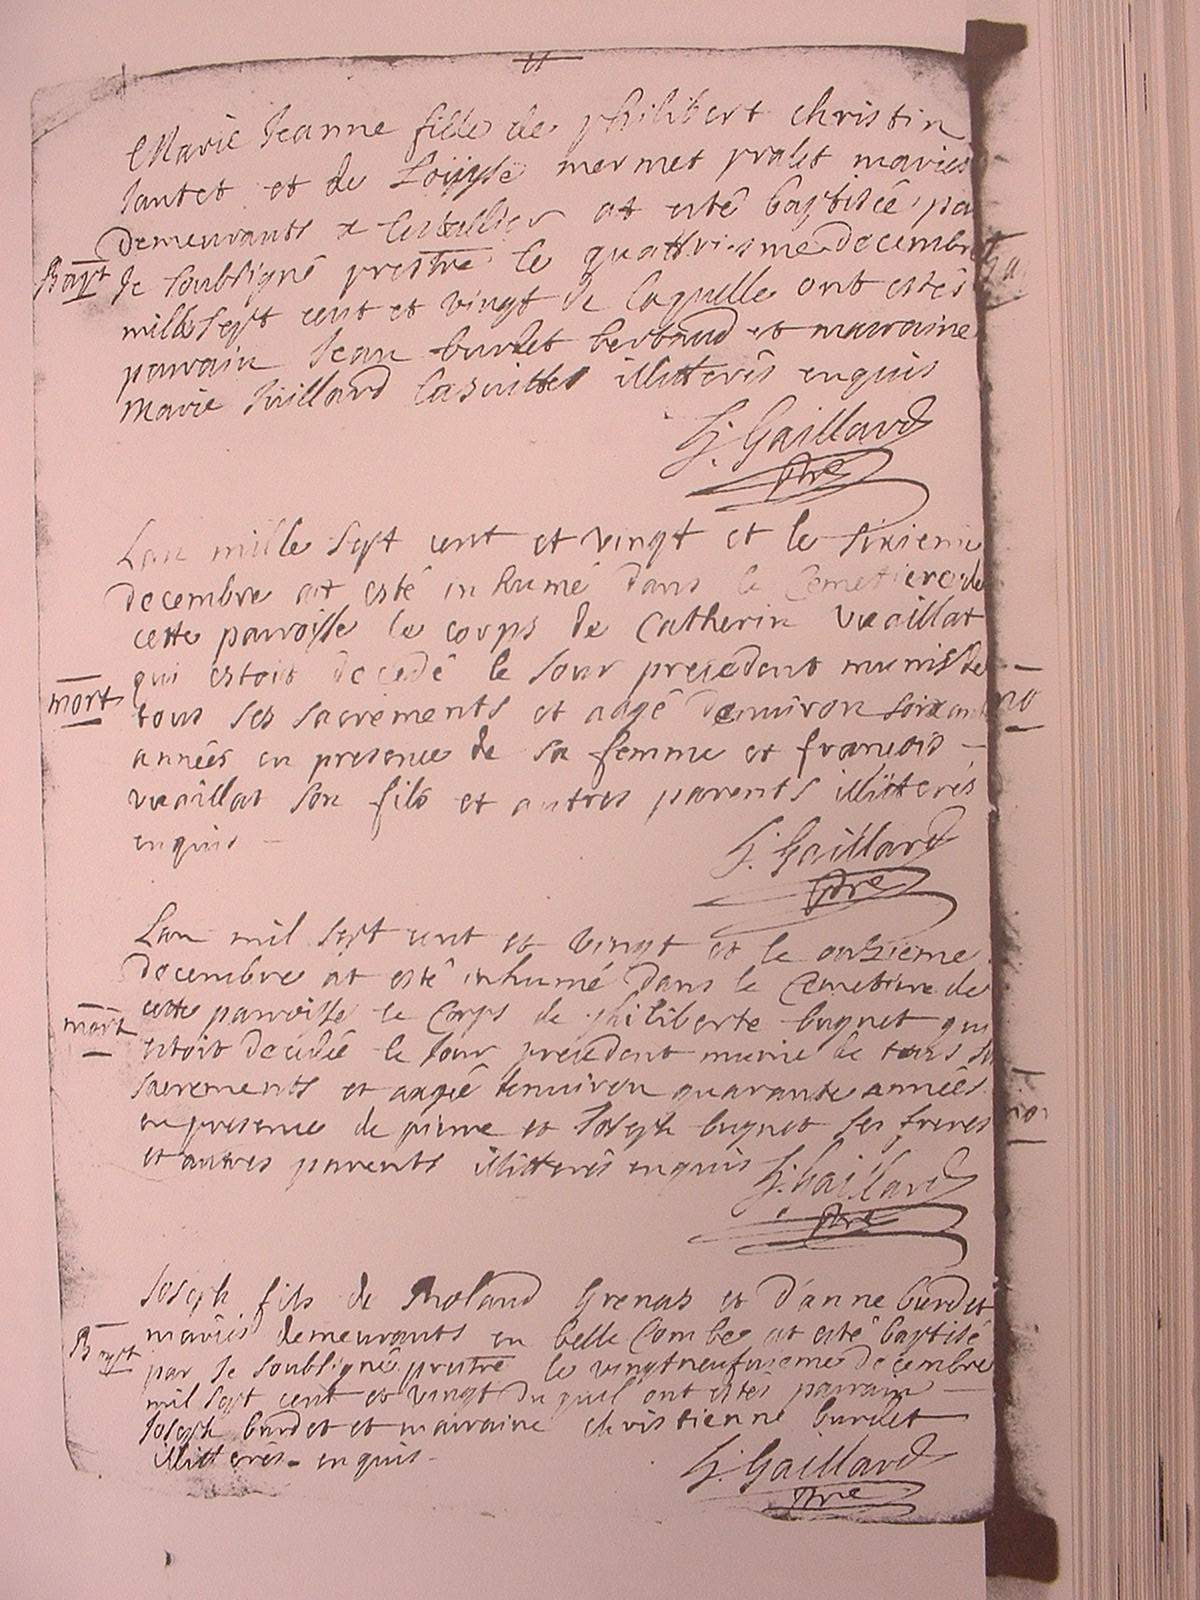 Marie Jeanne fille de philibert christin
Jantet et de Loüyse mermet pralet maries
demeurants a at esté baptisée pa
Bapt Je soubsigné prestre le quattriesme decembre
mille sept cent et vingt de laquelle ont estés
parrain Jean burdet berbaud et marraine
Marie Juillard illitterés enquis
J: Gaillard
ptre
Lan mille sept cent et vingt et le sixieme
decembre at esté inhumé dans le Cemetiere de
cette parroisse le corps de Catherin vuaillat
qui estoit decedé le Jour precedent munis de
mort tous ses sacrements et aagé denuiron soixant
années en presence de sa femme et francois
vuaillat son fils et autres parents illitterés
enquis
J: Gaillard
ptre
Lan mil sept cent et vingt et le onzieme
decembre at esté inhumé dans le Cemetiere de
mort cette parroisse le Corps de philiberte buguet qui
estoit decedée le Jour precedent munie de tous se
sacrements et aagée denuiron quarante années
en presence de pierre et Joseph buguet ses freres
et autres parents illitterés enquis J: Gaillard
ptre
Joseph fils de Roland Grenas et d'anne burdet
mariés demeurants en belle Combe at esté baptisé
Bapt par Je soubsigné prestre le vingtneufuieme decembre
mil sept cent et vingt du quel ont estés parrain
Joseph burdet et marraine christienne burdet
illitterés enquis
J: Gaillard
ptre